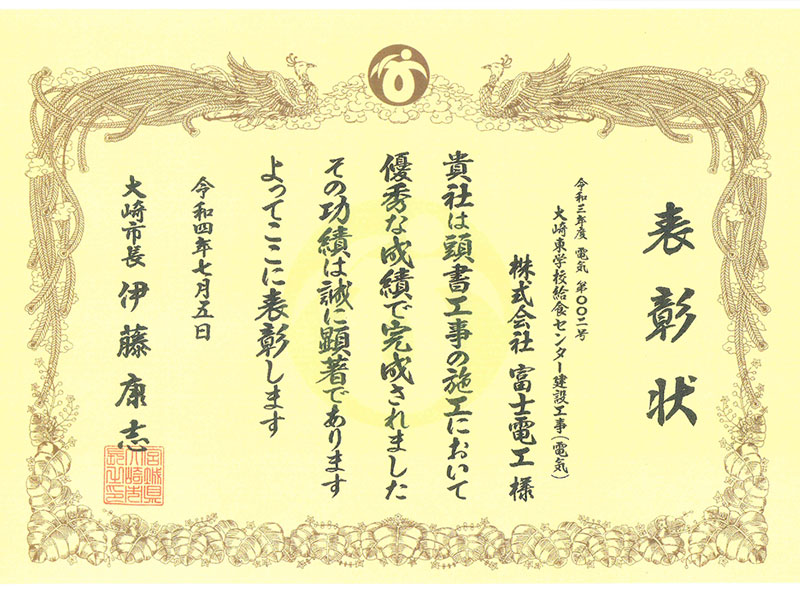 表彰状
令和三年度 電気 第〇〇二号
大崎東学校給食センター建設工事(電気)
株式会社 富士電工 様
貴社は頭書工事の施工において
優秀な成績で完成されました
その功績は誠に顕著であります
よってここに表彰します
令和四年七月五日
大崎市長 伊藤康志
宮城県
大崎市
長之印